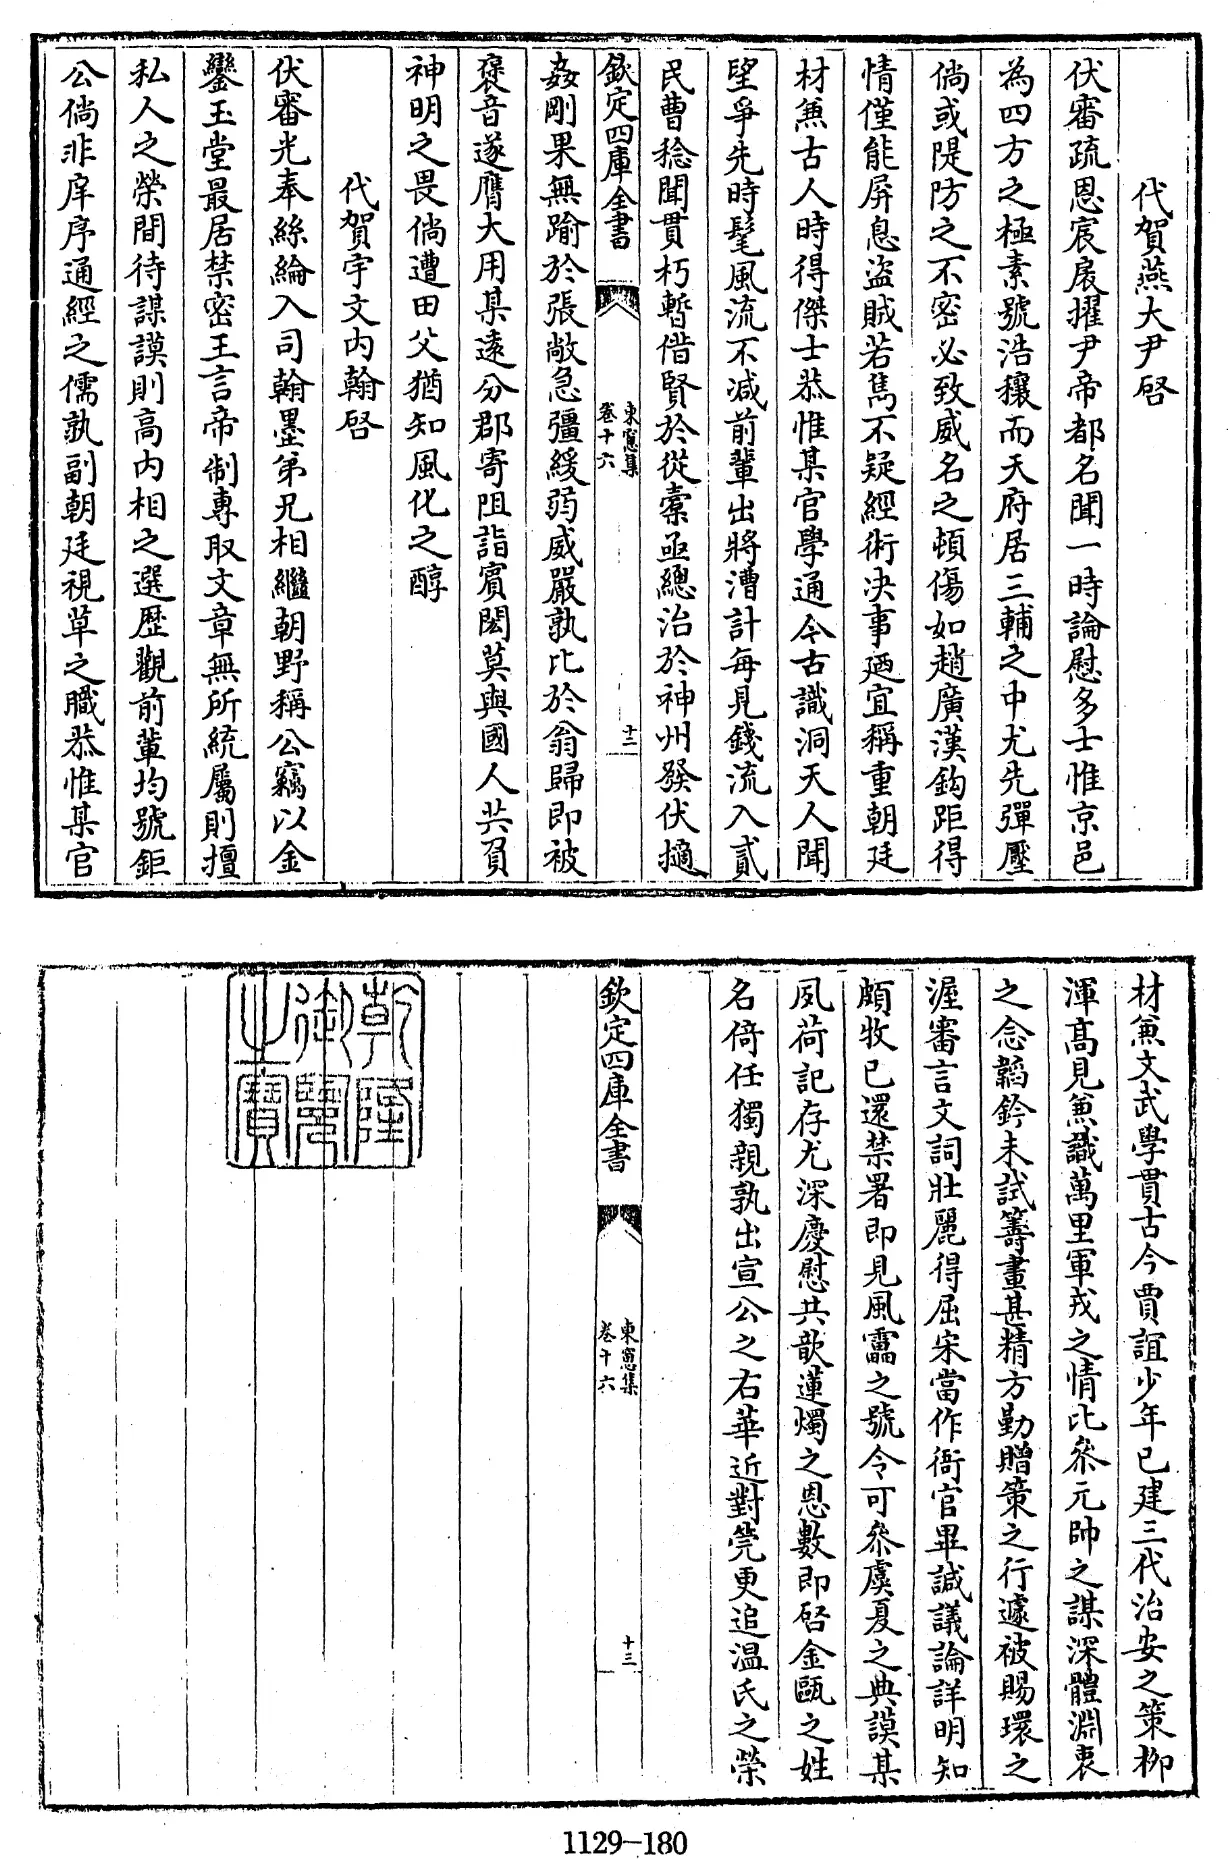 代賀燕大尹啓
伏審疏恩宸扆擢尹帝都名聞一時論慰多士惟京邑
為四方之極素號浩穰而天府居三輔之中尤先彈壓
倘或隄防之不密必致威名之頓傷如趙廣漢鈎距得
情僅能屏息盜賊若雋不疑經術決事廼宜稱重朝廷
材無古人時得傑士恭惟某官學通今古識洞天人聞
望爭先時髦風流不減前輩出將漕計每見錢流入貳
民曹稔聞貫朽暫借賢於從橐亟總治於神州發伏擿
欽定四庫全書
東窻集
卷十六
十二
姦剛果無踰於張敞急彊緩弱威嚴孰比於翁歸即被
褒音遂膺大用某遠分郡寄阻詣賓閎莫與國人共負
神明之畏倘遭田父猶知風化之醇
代賀宇文内翰啓
伏審光奉絲綸入司翰墨弟兄相繼朝野稱公竊以金
鑾玉堂最居禁密王言帝制專取文章無所統屬則擅
私人之榮間待謀謨則高内相之選歴觀前輩均號鉅
公倘非庠序通經之儒孰副朝廷視草之職恭惟某官
材兼文武學貫古今賈誼少年已建三代治安之策柳
渾高見兼識萬里軍戎之情比叅元帥之謀深體淵衷
之念韜鈐未試籌畫甚精方勤贈策之行遽被賜環之
渥審言文詞壯麗得屈宋當作衙官畢諴議論詳明知
頗牧已還禁署即見風靁之號令可叅虞夏之典謨某
夙荷記存尤深慶慰共歆蓮燭之恩數即啓金甌之姓
名倚任獨親孰出宣公之右華近對筦更追温氏之榮
欽定四庫全書
東窻集
卷十六
十三
乾隆御覽之寶
1129-180